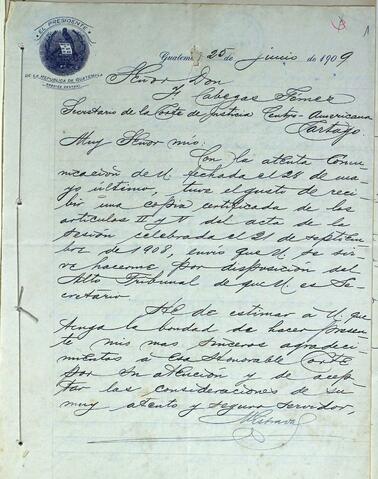 EL PRESIDENTE
DE LA REPUBLICA DE GUATEMALA
AMERICA CENTRAL
Guatemala, 25 de junio de 1909
Señor Don
Cabezas Gómez
Secretario de la Corte de Justicia Centro-Americana
Cartago
Muy Señor mio:
Con la atenta Comu-
nicación de U. fechada el 28 de ma-
yo último, tuve el gusto de reci-
bir una copia certificada de los
artículos II y V del acta de la
sesión celebrada el 21 de septiem-
bre de 1908, envío que U. se sir-
ve hacerme por disposición del
Alto Tribunal de que U. es Se-
cretario.
He de estimar a U. que
tenga la bondad de hacer presen-
te mis mas sinceros agradeci-
mientos á esa Honorable Corte
por su atención y de acep-
tar las consideraciones de su
muy atento y seguro servidor,